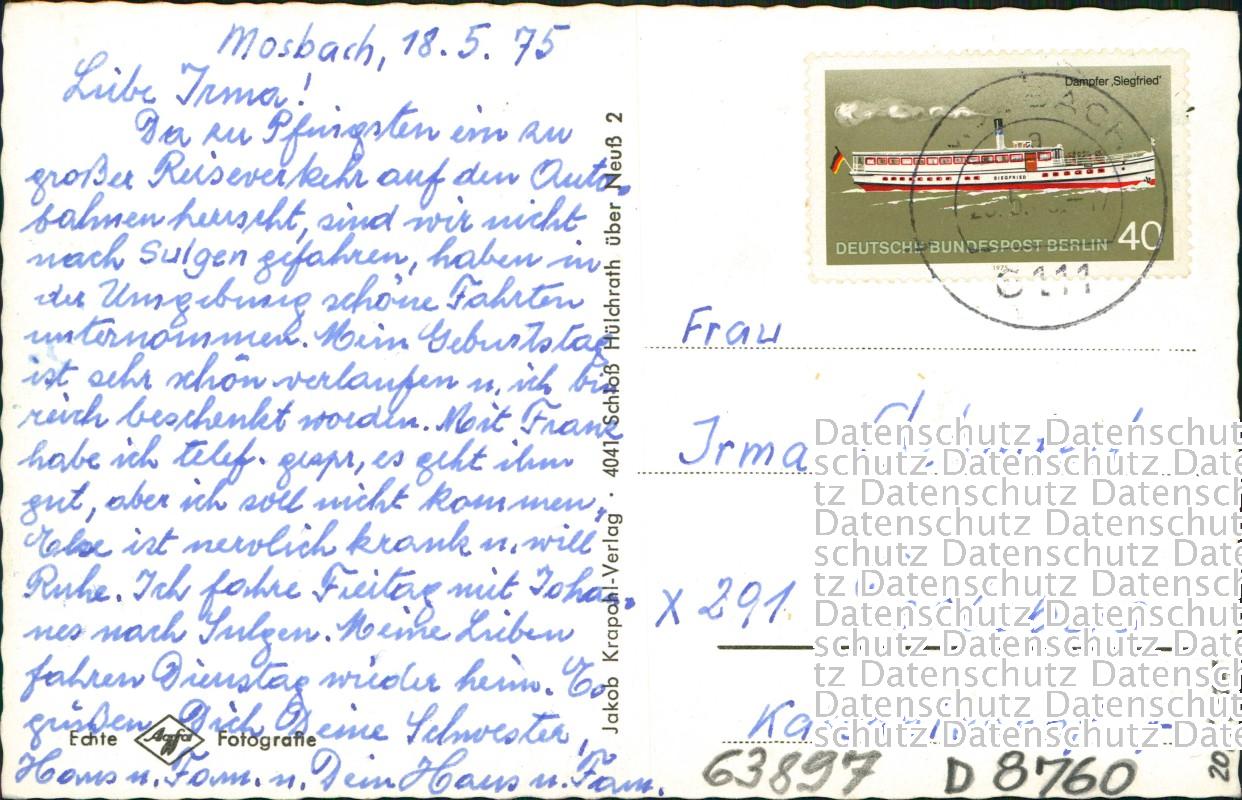 Mosbach, 18.5.75
Liebe Irma!
Da zu Pfingsten ein zu
großer Reiseverkehr auf den Auto-
bahnen herrscht, sind wir nicht
nach Sulgen gefahren, haben in
der Umgebung schöne Fahrten
unternommen. Mein Geburtstag
ist sehr schön verlaufen u. ich bin
reich beschenkt worden. Mit Frank
habe ich telef. gespr, es geht ihm
gut, aber ich soll nicht kommen,
Else ist nervlich krank u. will
Ruhe. Ich fahre Freitag mit Johan-
nes nach Sulgen. Meine Lieben
fahren Dienstag wieder heim. Es
grüßen Dich Deine Schwester,
Hans u. Fam. u. Dein Hans u. Fam.
Echte Agfa Fotografie
Jakob Krapohl-Verlag · 4041 Schloß Hülchrath über Neuß 2
Dampfer ‚Siegfried'
SIEGFRIED
DEUTSCHE BUNDESPOST BERLIN 40
1975
Frau
Irma
X 291
Datenschutz Datenschutz Dat
schutz Datenschutz Date
tz Datenschutz Datensch
Datenschutz Datenschutz
schutz Datenschutz Date
tz Datenschutz Datensch
Datenschutz Datenschutz
schutz Datenschutz Date
tz Datenschutz Datensch
Datenschutz Datenschutz
schutz Datenschutz Date
63897 D 8760